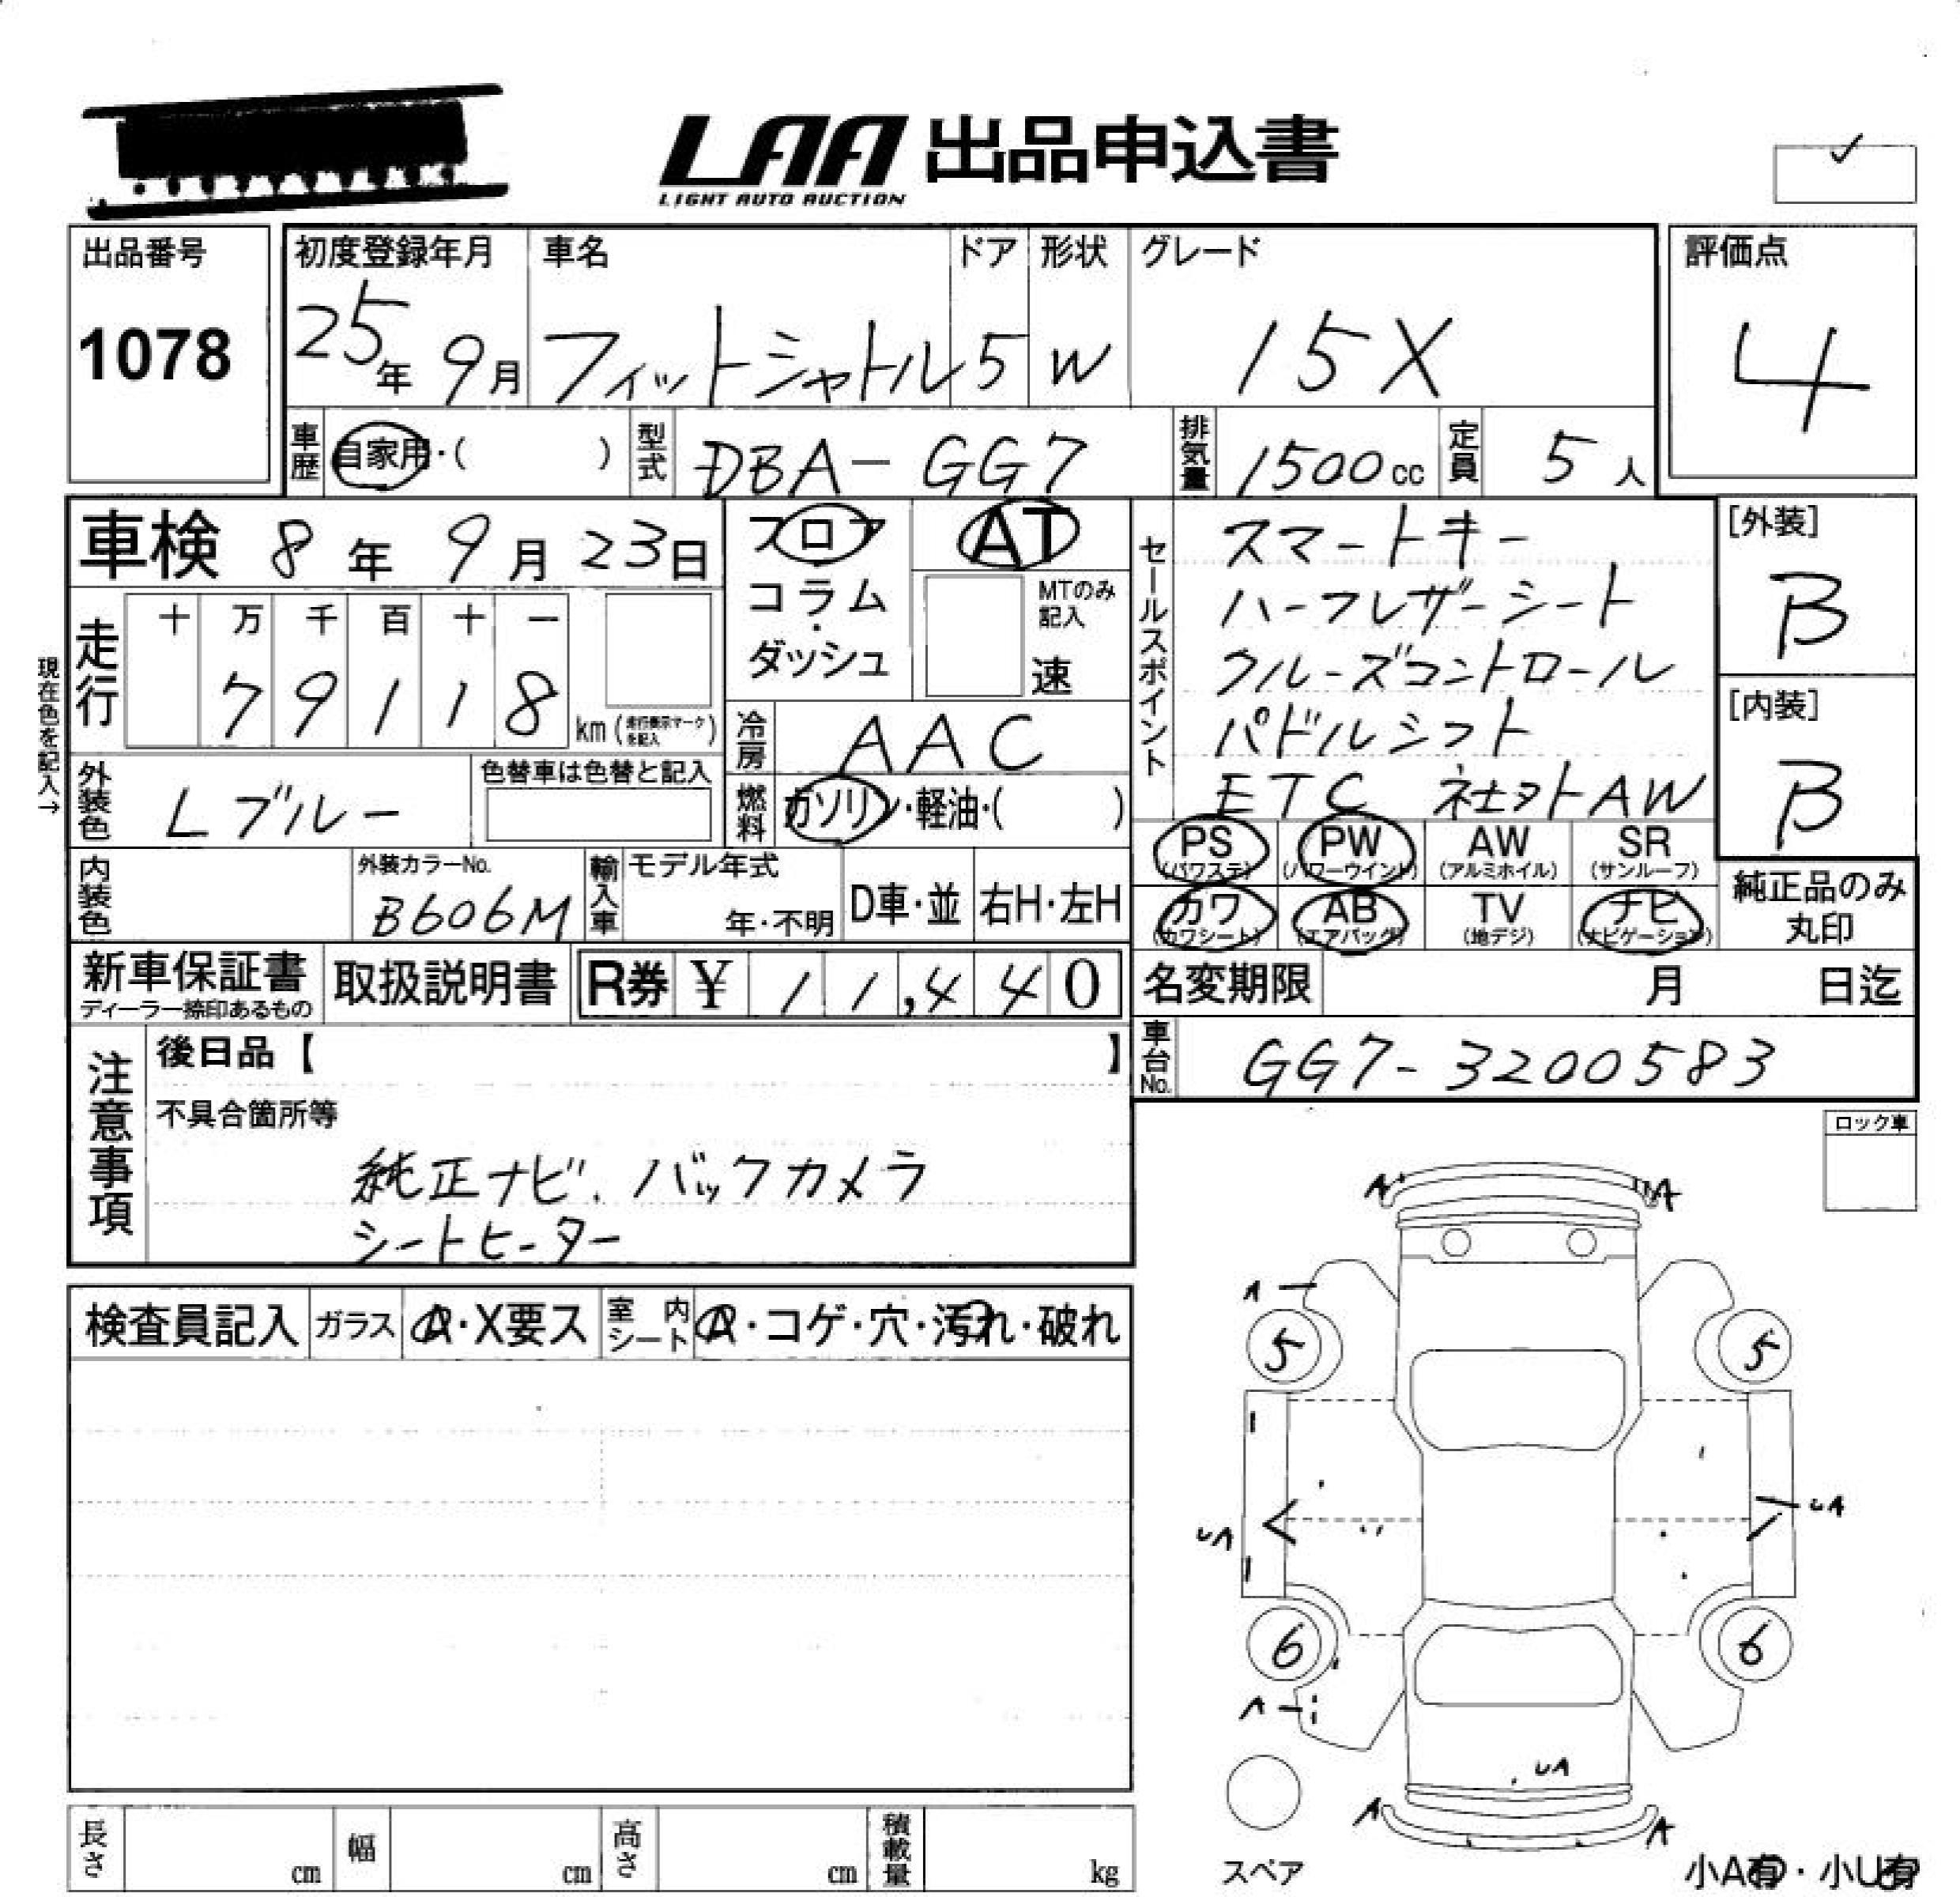 LAA 出品申込書
LIGHT AUTO AUCTION
出品番号
1078
初度登録年月
25年 9月
車名
フィットシャトル
ドア
5
形状
W
グレード
15X
評価点
4
車歴
自家用・( )
型式
DBA-GG7
排気量
1500cc
定員
5人
車検 8年 9月 23日
フロア
コラム
・
ダッシュ
AT
MTのみ
記入
速
セールスポイント
スマートキー
ハーフレザーシート
クルーズコントロール
パドルシフト
ETC 社外AW
[外装]
B
[内装]
B
現在色を記入→
走行
十 万 千 百 十 一
7 9 1 1 8
km(走行表示マークを記入)
冷房
AAC
外装色
Lブルー
色替車は色替と記入
燃料
ガソリン・軽油・( )
PS
(パワステ)
PW
(パワーウインド)
AW
(アルミホイル)
SR
(サンルーフ)
カワ
(カワシート)
AB
(エアバッグ)
TV
(地デジ)
ナビ
(ナビゲーション)
純正品のみ
丸印
内装色
外装カラーNo.
B606M
輸入車
モデル年式
年・不明
D車・並
右H・左H
新車保証書
ディーラー捺印あるもの
取扱説明書
R券 ¥ 11,440
名変期限 月 日迄
車台No.
GG7-3200583
注意事項
後日品【 】
不具合箇所等
純正ナビ、バックカメラ
シートヒーター
ロック車
検査員記入
ガラス
A・X要ス
室内シート
A・コゲ・穴・汚れ・破れ
A A
A
5 5
UA UA
6 6
A
UA
A A
スペア
小A有・小U有
長さ cm
幅 cm
高さ cm
積載量 kg